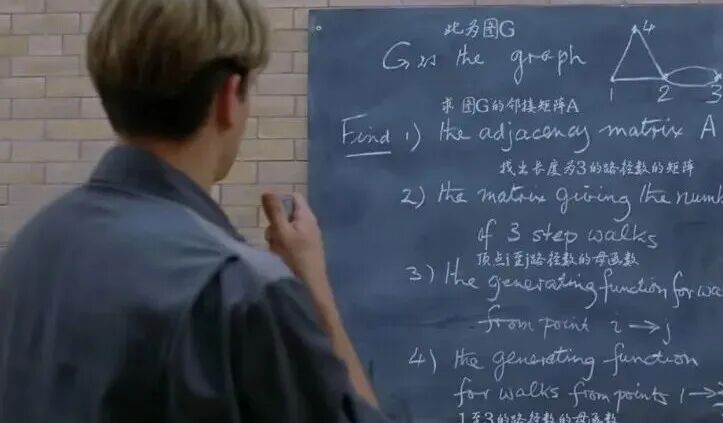 此为图G
G is the graph
4
1 2 3
求图G的邻接矩阵A
Find 1) the adjacency matrix A
找出长度为3的路径数的矩阵
2) the matrix giving the numb
of 3 step walks
顶点i至j路径数的母函数
3) the generating function for wa
from point i → j
4) the generating function
for walks from points 1 →
1至3的路径数的母函数